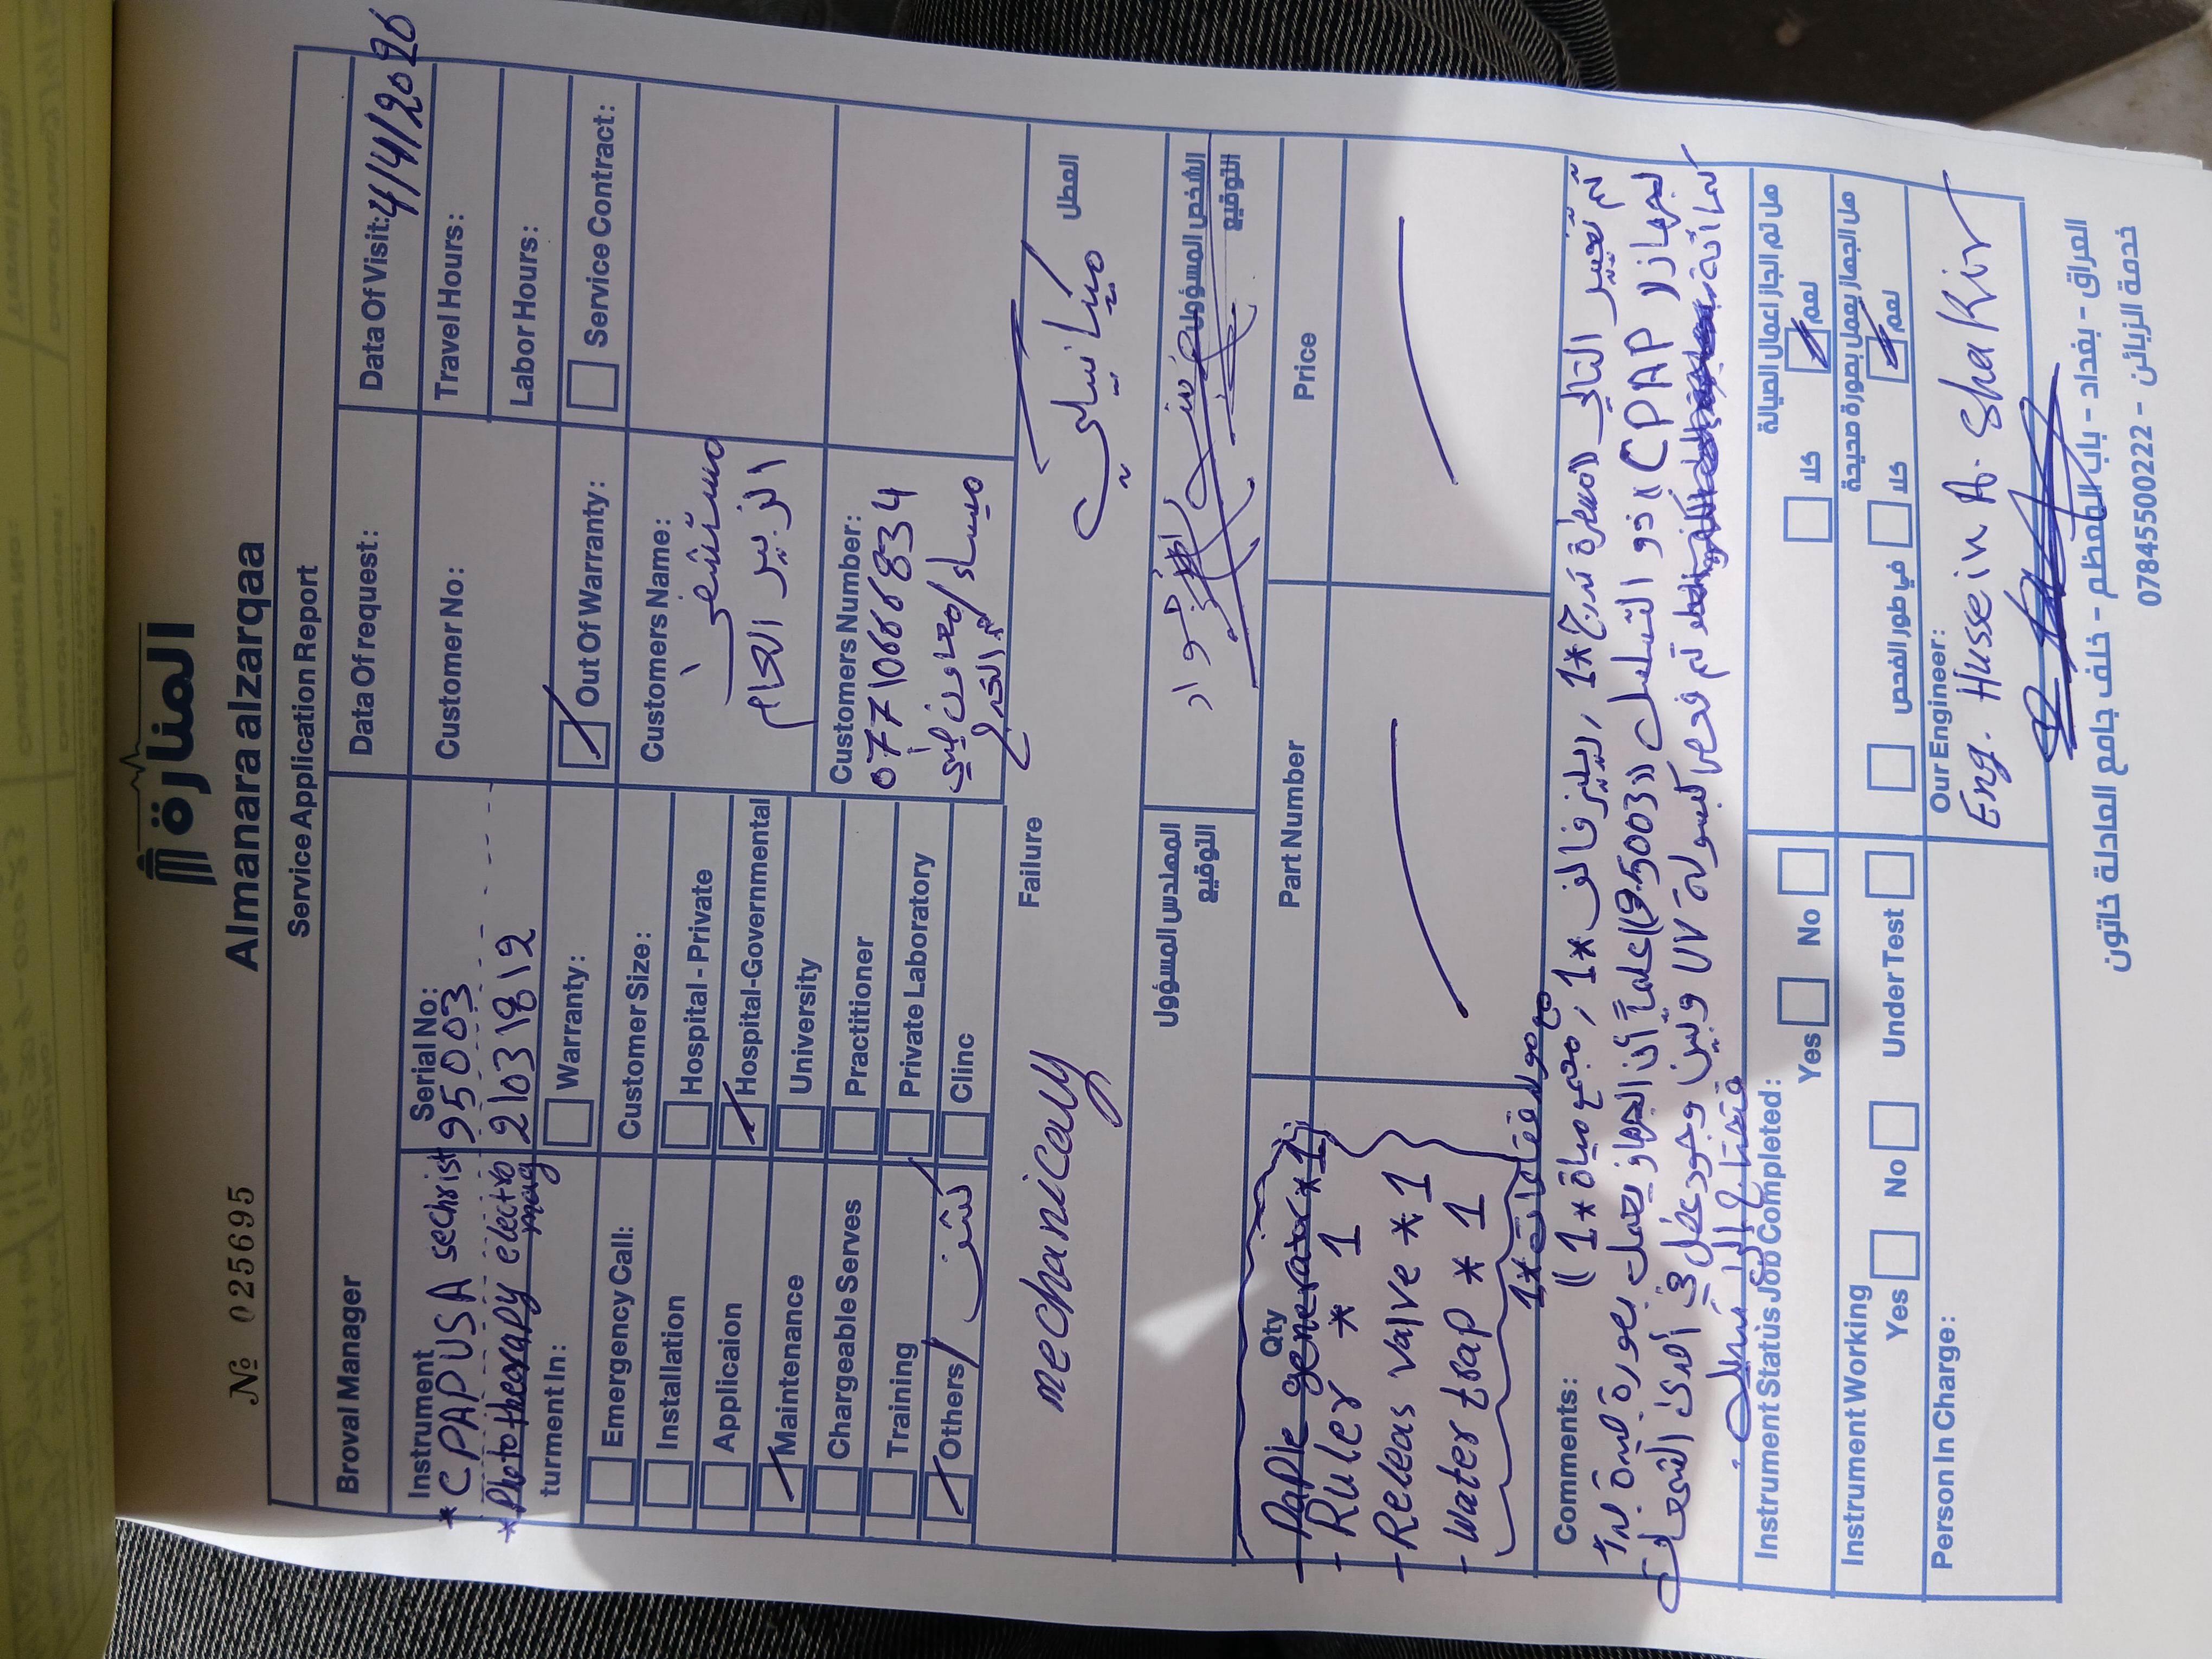 № 025695
المنارة
Almanara alzarqaa
Service Application Report
Broval Manager
Data Of request:
Data Of Visit: 4/4/2026
Instrument
Serial No:
Customer No:
Travel Hours:
* CPAP USA sechrist
95003
Labor Hours:
* Phototherapy electro mag
21031812
turment In:
Warranty:
Out Of Warranty:
Service Contract:
Emergency Call:
Customer Size:
Customers Name:
Installation
Hospital - Private
مستشفى
Applicaion
Hospital-Governmental
الزبير العام
Maintenance
University
Chargeable Serves
Practitioner
Customers Number:
07710666834
Training
Private Laboratory
ميساء / معاون
Others / كشف
Clinc
Failure
العطل
mechanicaly
ميكانيكي
المهندس المسؤول
التوقيع
الشخص المسؤول
التوقيع
Qty
Part Number
Price
- Ruler * 1
- Releas valve * 1
- water trap * 1
Comments:
تم تغيير التالي (مسطرة تدرج *1 , ريليز فالف *1 , مجمع مياه *1)
لجهاز (CPAP) ذو التسلسل (95003) علماً أن الجهاز يعمل بصورة جيدة
كما أنه تم فحص كبسولة UV وتبين وجود عطل في
Instrument Status Job Completed:
Yes
No
كلا
نعم
هل تم انجاز اعمال الصيانة
Instrument Working
Yes
No
Under Test
في طور الفحص
كلا
نعم
هل الجهاز يعمل بصورة صحيحة
Person In Charge:
Our Engineer:
Eng. Hussein A. Shakir
العراق - بغداد - باب المعظم - خلف جامع العادلة خاتون
خدمة الزبائن - 07845500222